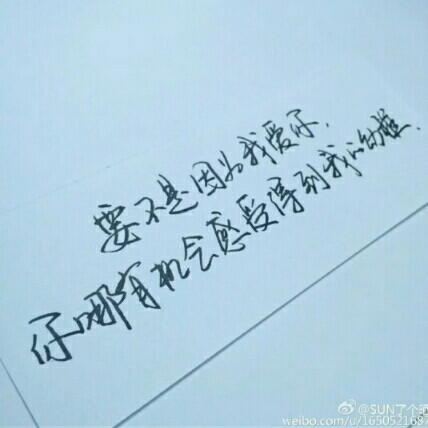 要不是因为我爱你，
你哪有机会感受得到我的幼稚．
@SUN了个
weibo.com/u/165052168